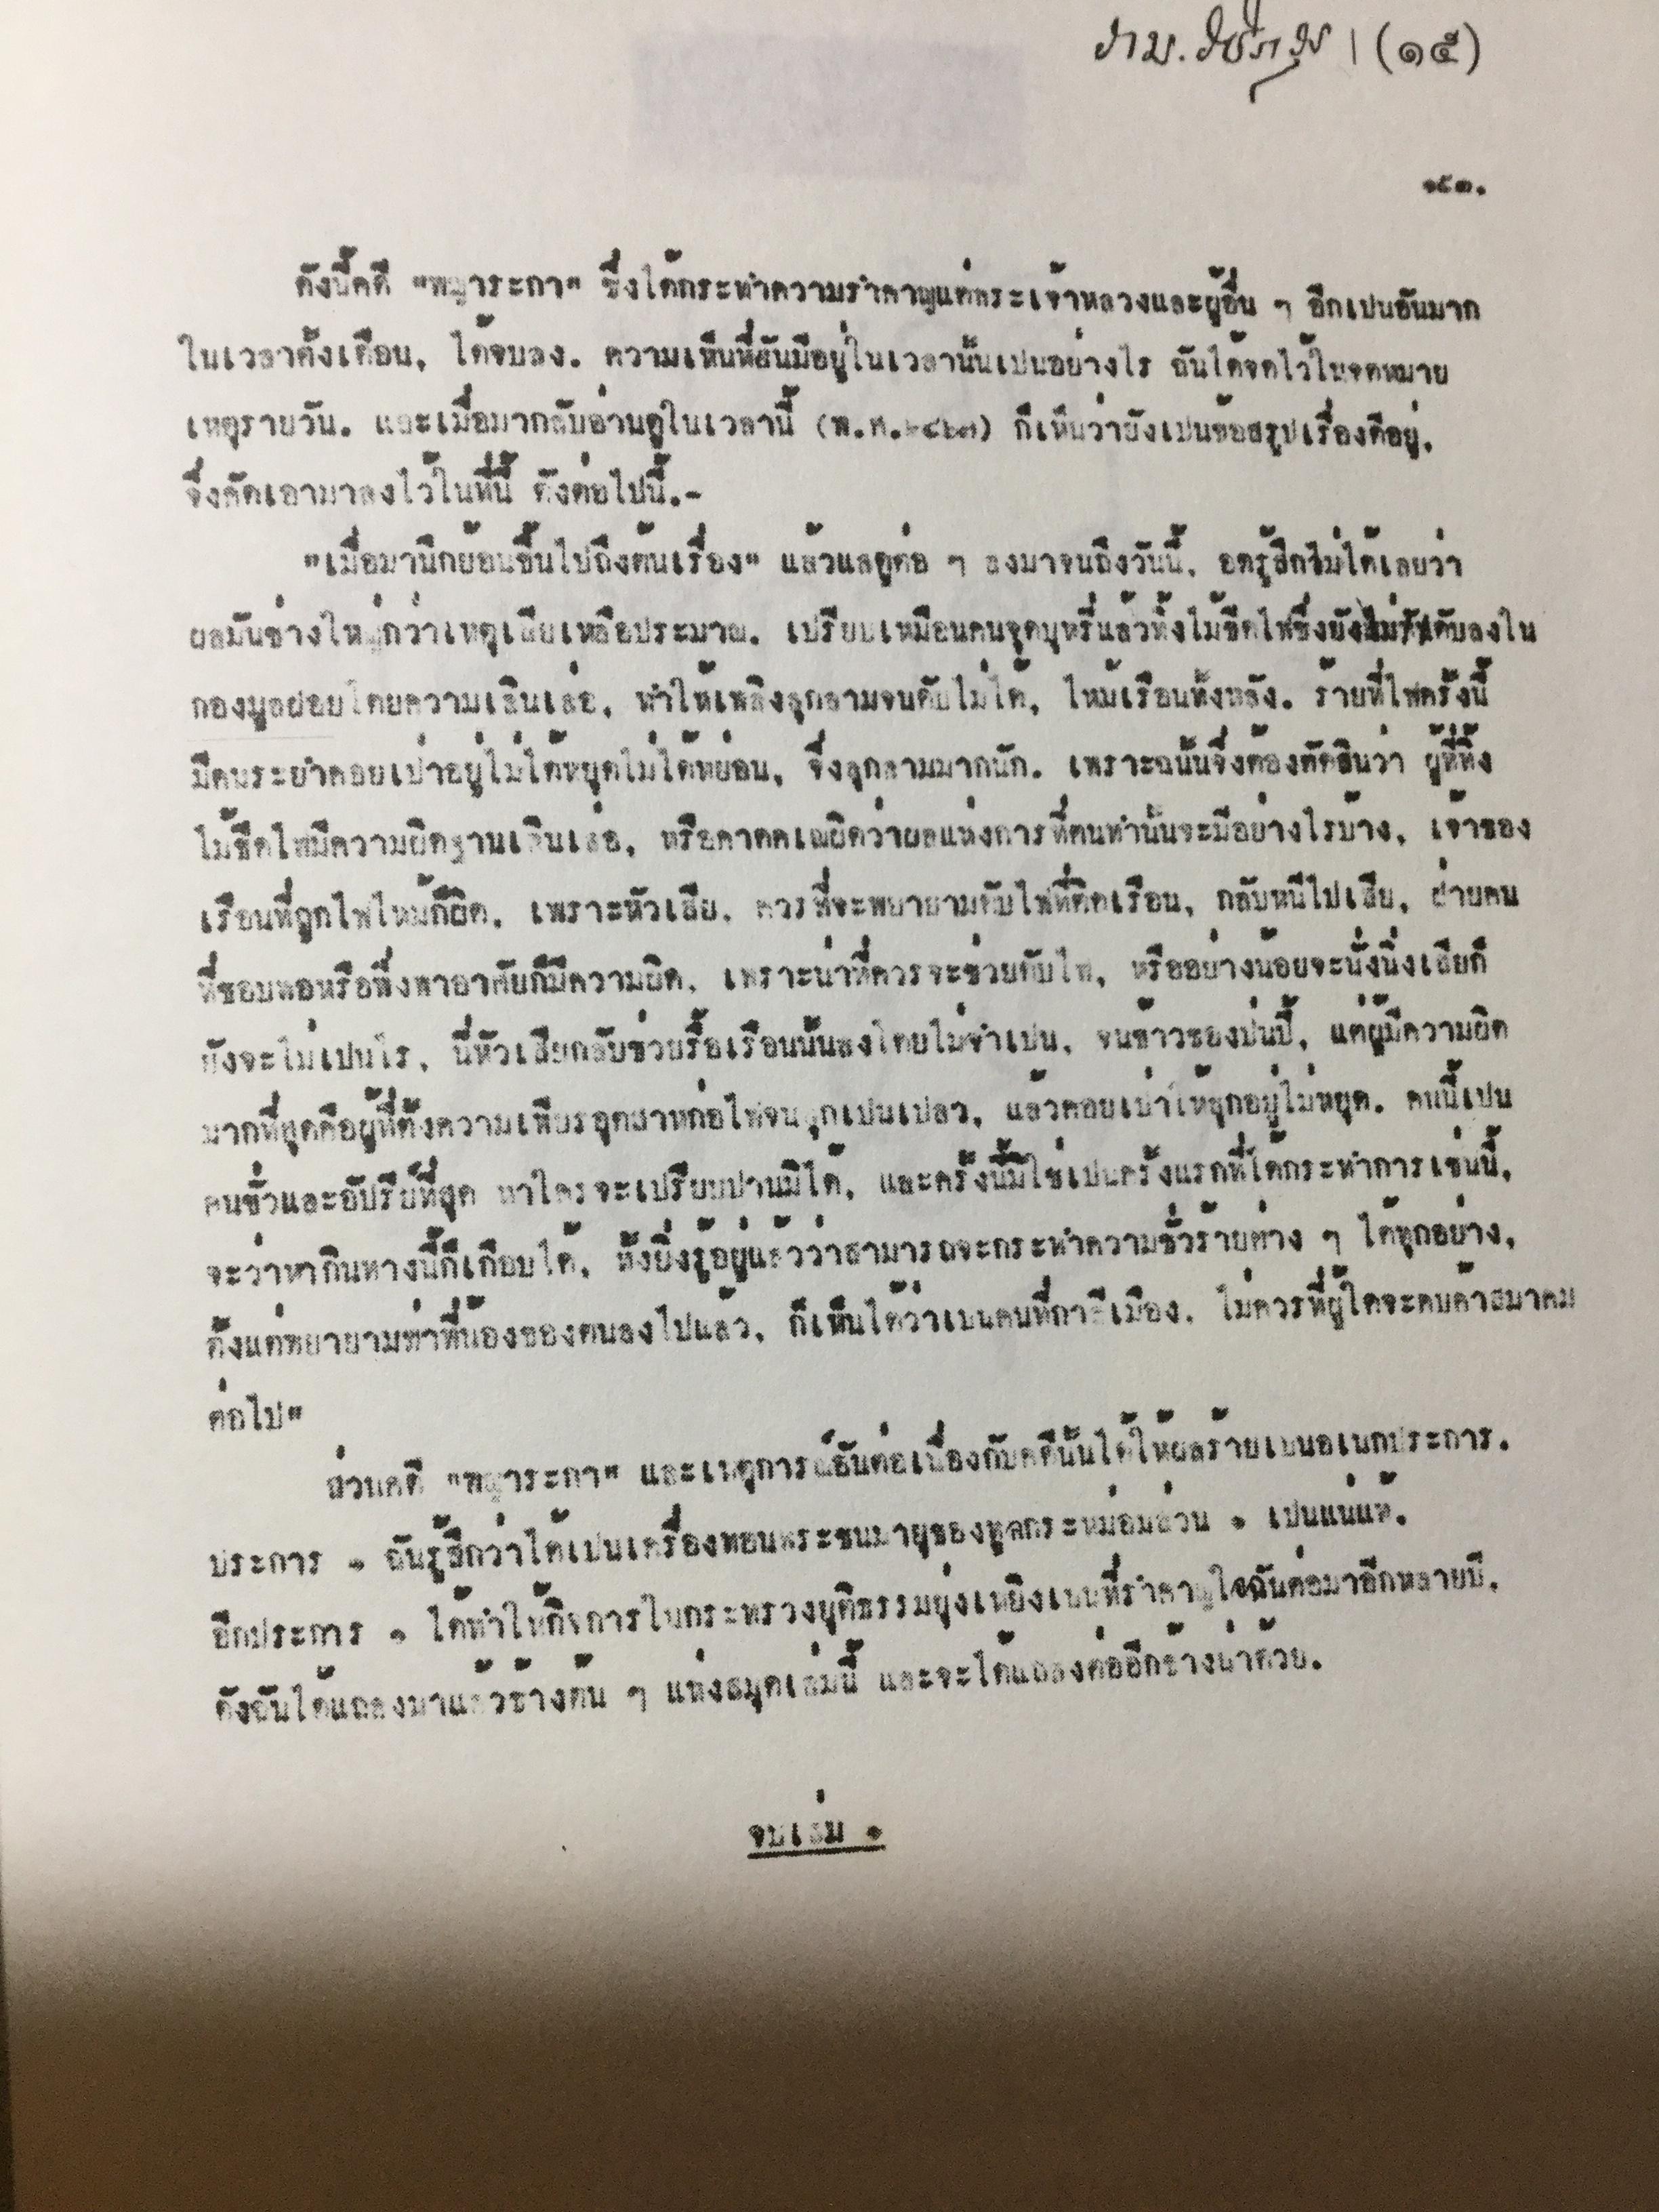 (๑๕)
๑๕๓.
ดังนี้คดี "พญาระกา" ซึ่งได้กระทำความรำคาญแด่พระเจ้าหลวงและผู้อื่น ๆ อีกเปนอันมาก
ในเวลาตั้งเดือน, ได้จบลง. ความเห็นที่ฉันมีอยู่ในเวลานั้นเปนอย่างไร ฉันได้จดไว้ในจดหมาย
เหตุรายวัน. และเมื่อมากลับอ่านดูในเวลานี้ (พ.ศ.๒๔๖๗) ก็เห็นว่ายังเปนข้อสรุปเรื่องดีอยู่,
จึ่งคัดเอามาลงไว้ในที่นี้ ดังต่อไปนี้.-
"เมื่อมานึกย้อนขึ้นไปถึงต้นเรื่อง" แล้วแลดูต่อ ๆ ลงมาจนถึงวันนี้, อดรู้สึกไม่ได้เลยว่า
ผลมันช่างใหญ่กว่าเหตุเสียเหลือประมาณ. เปรียบเหมือนคนจุดบุหรี่แล้วทิ้งไม้ขีดไฟซึ่งยังไม่ดับลงใน
กองมูลฝอยโดยความเลินเล่อ, ทำให้เพลิงลุกลามจนดับไม่ได้, ไหม้เรือนทั้งหลัง. ร้ายที่ไฟครั้งนี้
มีคนระยำคอยเป่าอยู่ไม่ได้หยุดไม่ได้หย่อน, จึ่งลุกลามมากนัก. เพราะฉนั้นจึ่งต้องตัดสินว่า ผู้ที่ทิ้ง
ไม้ขีดไฟมีความผิดฐานเลินเล่อ, หรือคาดคเณผิดว่าผลแห่งการที่ตนทำนั้นจะมีอย่างไรบ้าง, เจ้าของ
เรือนที่ถูกไฟไหม้ก็ผิด, เพราะหัวเสีย, ควรที่จะพยายามดับไฟที่ติดเรือน, กลับหนีไปเสีย, ฝ่ายคน
ที่ชอบพอหรือพึ่งพาอาศัยก็มีความผิด, เพราะน่าที่ควรจะช่วยดับไฟ, หรืออย่างน้อยจะนั่งนิ่งเสียก็
ยังจะไม่เปนไร, นี่หัวเสียกลับช่วยรื้อเรือนนั้นลงโดยไม่จำเปน, จนข้าวของป่นปี้, แต่ผู้มีความผิด
มากที่สุดคือผู้ที่ตั้งความเพียรอุตสาหก่อไฟจนลุกเปนเปลว, แล้วคอยเป่าให้ลุกอยู่ไม่หยุด. คนนี้เปน
คนชั่วและอัปรีย์ที่สุด หาใครจะเปรียบปานมิได้, และครั้งนี้มิใช่เปนครั้งแรกที่ได้กระทำการเช่นนี้,
จะว่าหากินทางนี้ก็เกือบได้, ทั้งยิ่งรู้อยู่แล้วว่าสามารถจะกระทำความชั่วร้ายต่าง ๆ ได้ทุกอย่าง,
ตั้งแต่พยายามฆ่าพี่น้องของตนลงไปแล้ว, ก็เห็นได้ว่าเปนคนที่กาลีเมือง, ไม่ควรที่ผู้ใดจะคบค้าสมาคม
ต่อไป"
ส่วนคดี "พญาระกา" และเหตุการณ์อันต่อเนื่องกับคดีนั้นได้ให้ผลร้ายเปนอเนกประการ.
ประการ ๑ ฉันรู้สึกว่าได้เปนเครื่องทอนพระชนมายุของทูลกระหม่อมส่วน ๑ เปนแน่แท้.
อีกประการ ๑ ได้ทำให้กิจการในกระทรวงยุติธรรมยุ่งเหยิงเปนที่รำคาญใจฉันต่อมาอีกหลายปี,
ดังฉันได้แถลงมาแล้วข้างต้น ๆ แห่งสมุดเล่มนี้ และจะได้แถลงต่ออีกข้างน่าด้วย.
จบเล่ม ๑